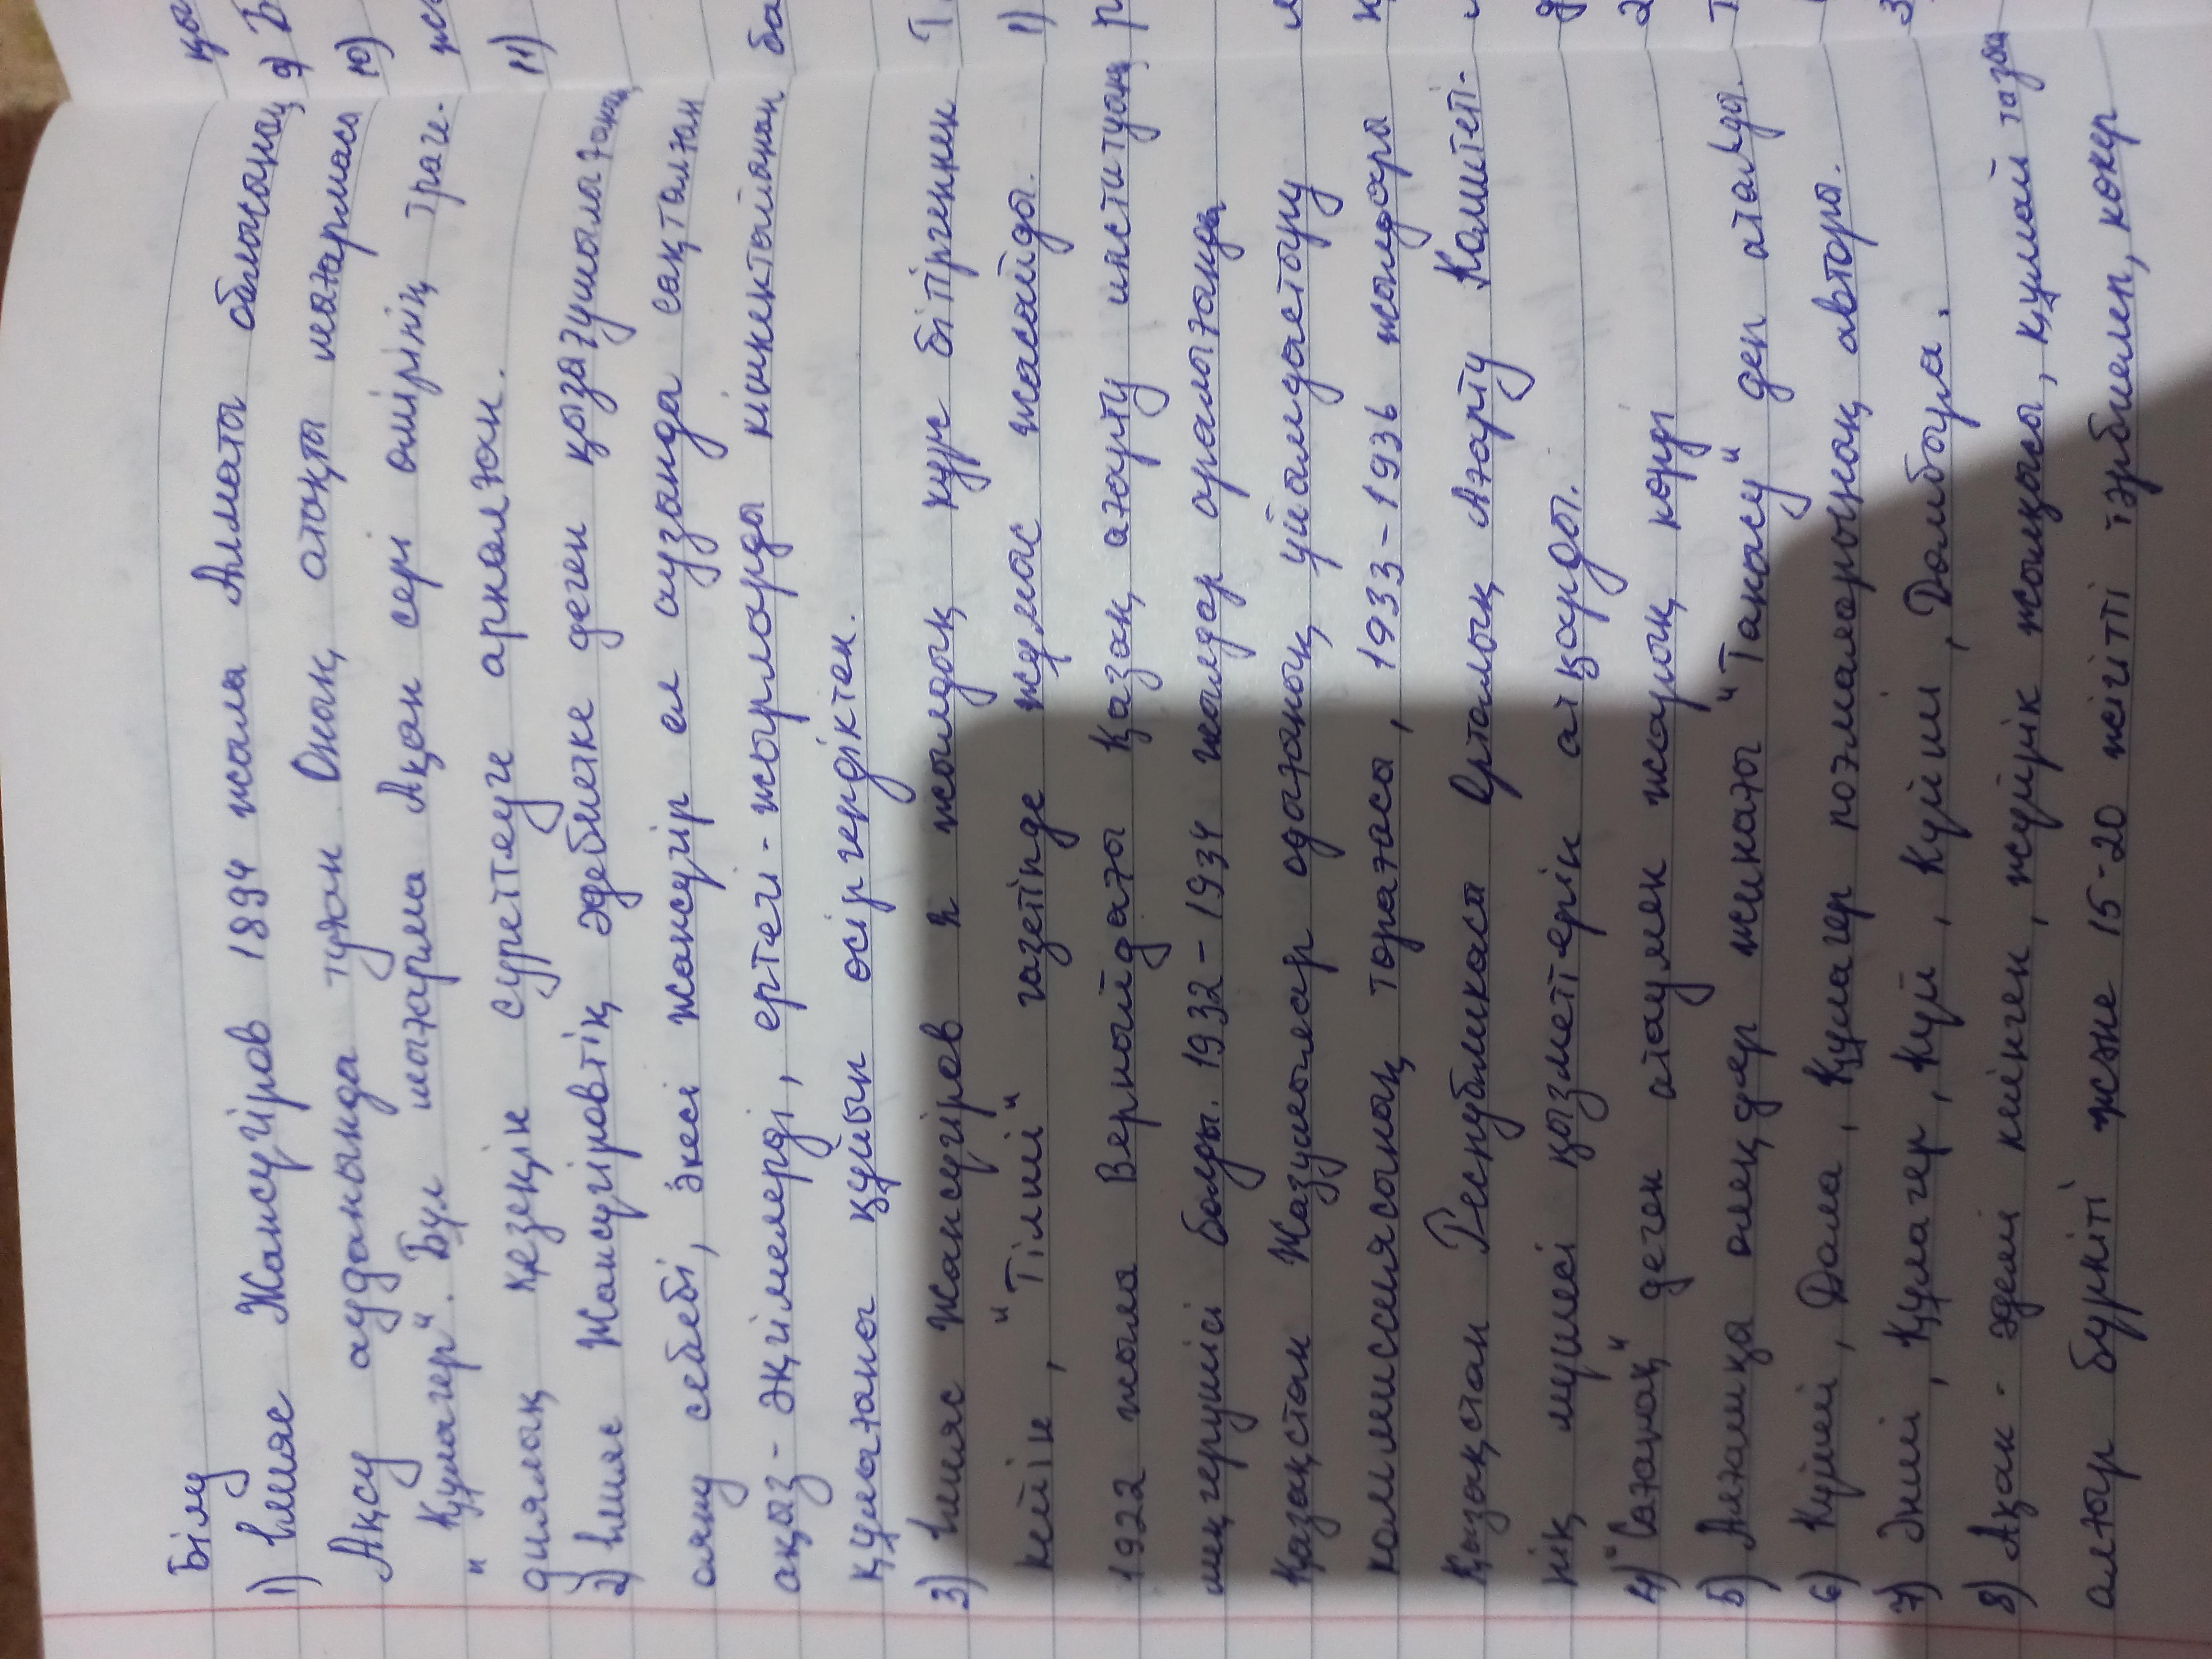 Білу
1) Ілияс Жансүгіров 1894 жылы Алматы облысының
Ақсу ауданында туған. Оның атақты шығармасы
"Құлагер". Бұл шығарма Ақан сері өмірінің траге-
диялық кезеңін суреттеуге арналған.
2) Ілияс Жансүгіровтің әдебиетке деген қызығушылығының
ояну себебі, әкесі Жансүгір ел аузында сақталған
аңыз-әңгімелерді, ертегі-жырларды кішкентайынан
құлағына құйып өсіргендіктен.
3) Ілияс Жансүгіров 2 жылдық курс бітіргеннен
кейін, "Тілші" газетінде жұмыс жасайды.
1922 жылы Верныйдағы Қазақ ағарту институтың
меңгерушісі болды. 1932-1934 жылдар аралығында
Қазақстан Жазушылар одағының ұйымдастыру
комиссиясының төрағасы, 1933-1936 жылдары
Қызақстан Республикасы Орталық Ағарту Комитеті-
нің мүшесі қызметтерін атқарды.
4) "Сағанақ" деген атаумен жарық көрді
5) Алғашқа өлеңдер жинағы "Таңысу" деп аталды.
6) Күйші, Дала, Құлагер поэмаларының авторы.
7) Әнші, Құлагер, Күй, Күйші, Домбыра.
8) Ақан - әдемі киінген, жүйрік жылқысы, құмай тазы
алғыр бүркіті және 15-20 жігітті тәрбиелеп, көкер
қы
9) Б
10)
жа
11)
ба
Т
1)
р
2
Т
3